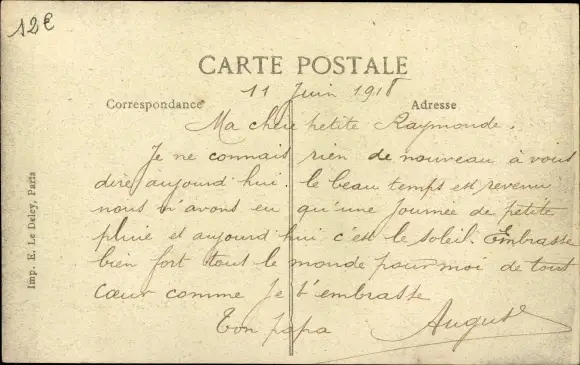 12€
CARTE POSTALE
11 Juin 1918
Correspondance
Adresse
Ma chere petite Raymonde.
Je ne connais rien de nouveau à vous
dire aujourd'hui. le beau temps est revenu
nous n'avons eu qu'une journée de petite
pluie et aujourd hui c'est le soleil. Embrasse
bien fort tout le monde pour moi de tout
cœur comme Je t'embrasse
Ton papa
Auguste
Imp. E. Le Deley, Paris